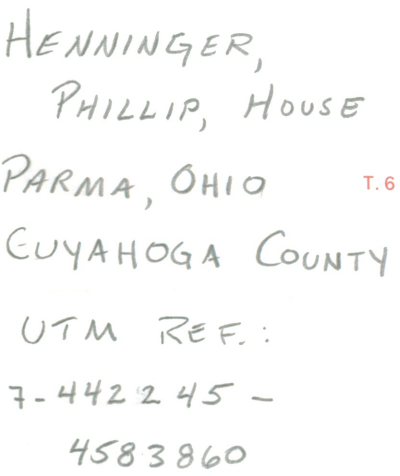 HENNINGER,
PHILLIP, HOUSE
PARMA, OHIO T.6
CUYAHOGA COUNTY
UTM REF.:
7-442245-
4583860